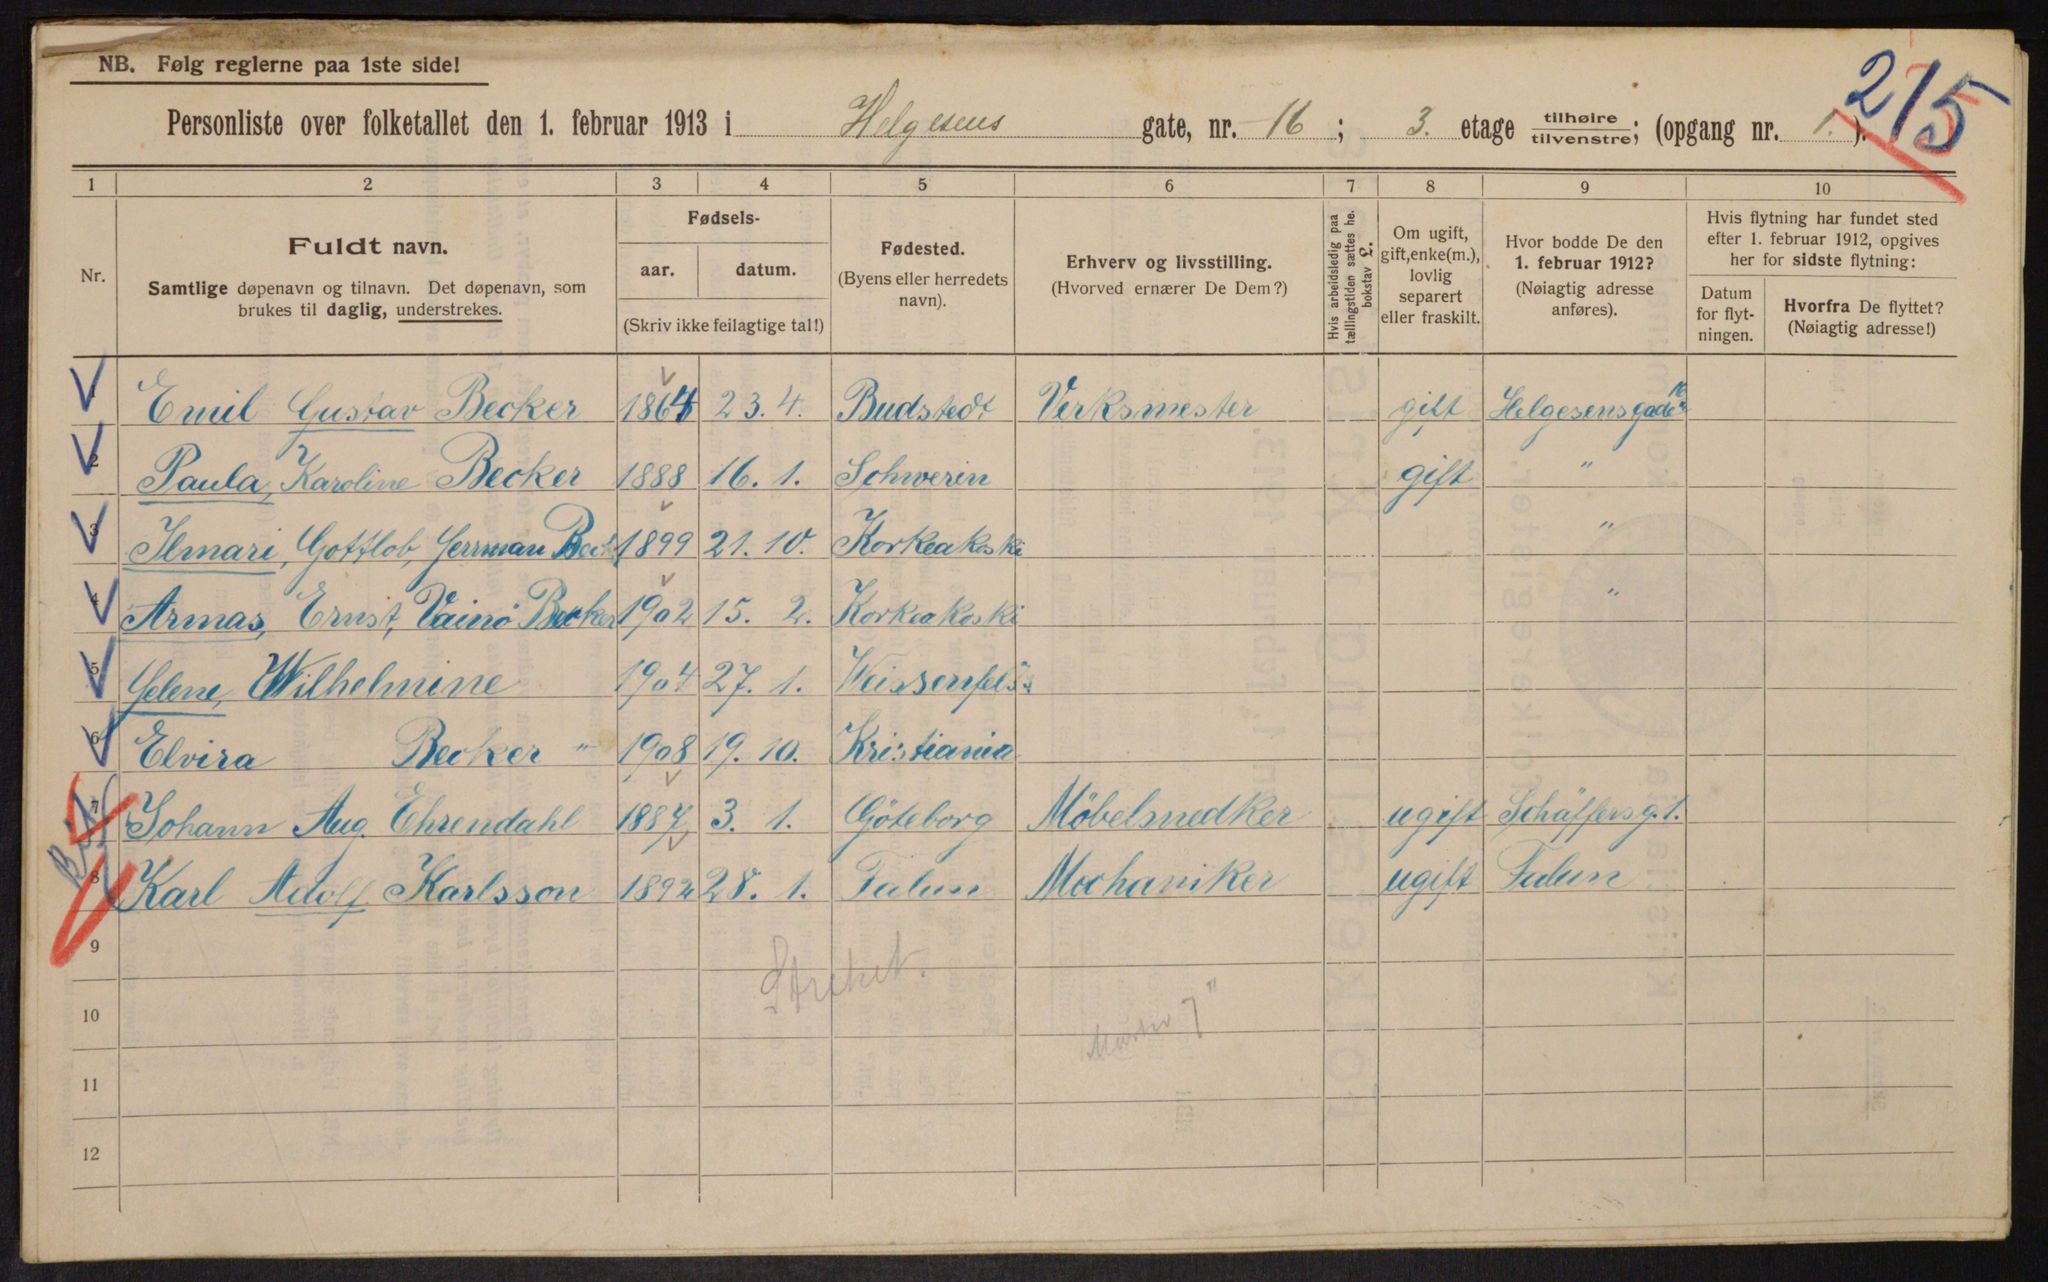 NB. Følg reglerne paa 1ste side!
215
Personliste over folketallet den 1. februar 1913 i Helgesens gate, nr. 16; 3. etage tilhøire/tilvenstre; (opgang nr. 1.).
1 2 3 4 5 6 7 8 9 10
Nr.
Fuldt navn.
Samtlige døpenavn og tilnavn. Det døpenavn, som
brukes til daglig, understrekes.
Fødsels-
aar. datum.
(Skriv ikke feilagtige tal!)
Fødested.
(Byens eller herredets
navn).
Erhverv og livsstilling.
(Hvorved ernærer De Dem?)
Hvis arbeidsledig paa
tællingstiden sættes he.
bokstav L.
Om ugift,
gift, enke(m.),
lovlig
separert
eller fraskilt.
Hvor bodde De den
1. februar 1912?
(Nøiagtig adresse
anføres).
Hvis flytning har fundet sted
efter 1. februar 1912, opgives
her for sidste flytning:
Datum
for flyt-
ningen.
Hvorfra De flyttet?
(Nøiagtig adresse!)
1 Emil Gustav Becker 1864 23. 4. Budstedt Verksmester gift Helgesensgade 16
2 Paula, Karoline Becker 1888 16. 1. Schwerin gift "
3 Ilmari, Gottlob, Herrman Beck 1899 21. 10. Korkeakoski "
4 Armas, Ernst, Vainö Becker 1902 15. 2. Korkeakoski "
5 Helene, Wilhelmine 1904 27. 1. Weissenfels
6 Elvira Becker " 1908 19. 10. Kristiania
7 Johann Aug. Ehrendahl 1887 3. 1. Göteborg Möbelsnedker ugift Schäffersg. 1.
8 Karl Adolf Karlsson 1892 28. 1. Falun Mechaniker ugift Falun
9
10
11
12